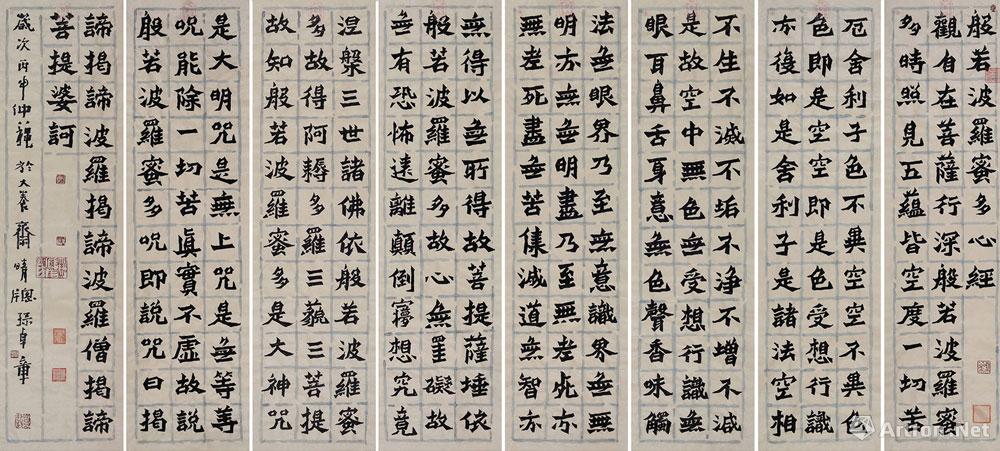 般若波羅蜜多心經
觀自在菩薩行深般若波羅蜜
多時照見五蘊皆空度一切苦
厄舍利子色不異空空不異色
色即是空空即是色受想行識
亦復如是舍利子是諸法空相
不生不滅不垢不淨不增不減
是故空中無色無受想行識無
眼耳鼻舌身意無色聲香味觸
法無眼界乃至無意識界無無
明亦無無明盡乃至無老死亦
無老死盡無苦集滅道無智亦
無得以無所得故菩提薩埵依
般若波羅蜜多故心無罣礙故
無有恐怖遠離顛倒夢想究竟
涅槃三世諸佛依般若波羅蜜
多故得阿耨多羅三藐三菩提
故知般若波羅蜜多是大神咒
是大明咒是無上咒是無等等
咒能除一切苦真實不虛故說
般若波羅蜜多咒即說咒曰揭
諦揭諦波羅揭諦波羅僧揭諦
菩提婆訶
歲次丙申仲於大養齋晴牕孫卓章
Artron.Net